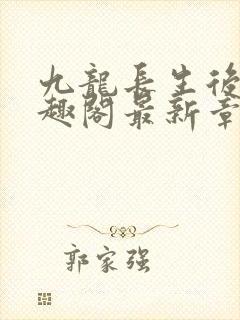 九龍長生後
趣閣最新章
郭家强